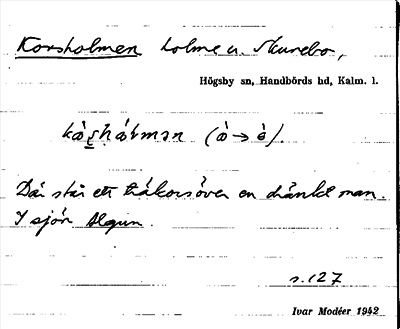 Korsholmen holme u. Skurebo,
Högsby sn, Handbörds hd, Kalm. l.
Där står ett träkors över en dränkt man.
I sjön Algun.
s. 127
Ivar Modéer 1942